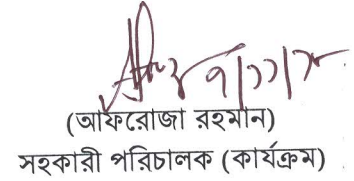 (আফরোজা রহমান)
সহকারী পরিচালক (কার্যক্রম)